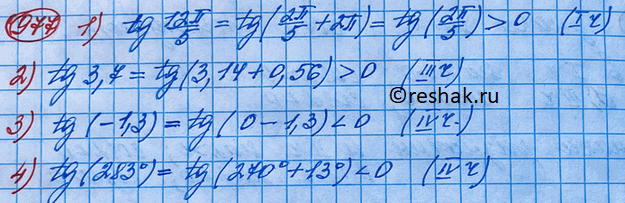 977 1) tg 12π/5 = tg(2π/5 + 2π) = tg(2π/5) > 0 (I ч)
2) tg 3,7 = tg(3,14 + 0,56) > 0 (III ч)
©reshak.ru
3) tg(-1,3) = tg(0 - 1,3) < 0 (IV ч.)
4) tg(283°) = tg(270° + 13°) < 0 (IV ч)